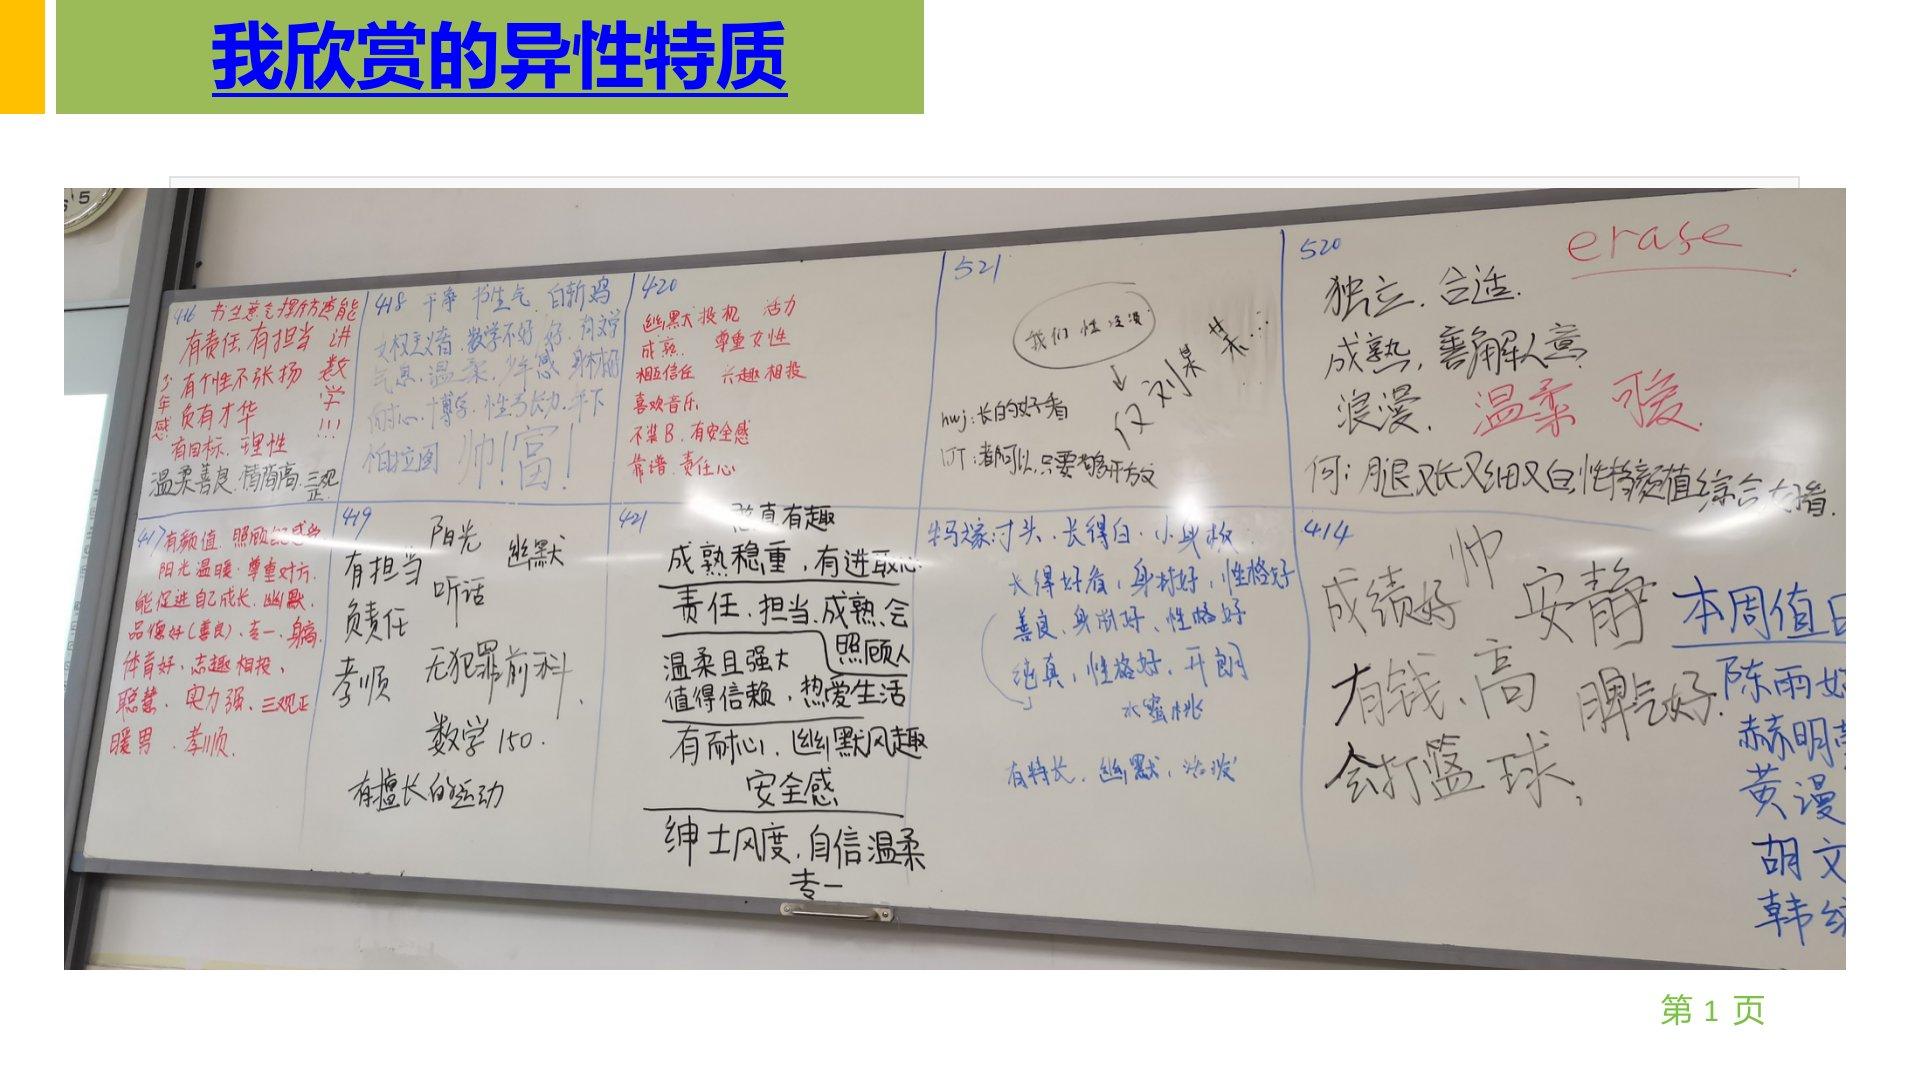 我欣赏的异性特质
5
416 书生意气挥斥方遒能
有责任,有担当 进
少年感
有个性不张扬 数
负有才华 学
有目标、理性 !!!
温柔善良.情商高.三观正
418 干净 书生气 白斩鸡
女权主义者.数学不好
气息.温柔.少年感 身材好
耐心.博学.
柏拉图 帅!富!
420
幽默大投机 活力
成熟. 尊重女性
相互信任 兴趣相投
喜欢音乐
不装B.有安全感
靠谱.责任心
521
我们性冷漠
仅刘某某...
hwj:长的好看
520
erase
独立.合适.
成熟,善解人意
浪漫. 温柔 可爱.
何:腿又长又细又白,性格颜值综合
417 有颜值.照顾
阳光温暖.尊重对方.
能促进自己成长.幽默.
品德好(善良)、专一、身高
体育好、志趣相投、
聪慧、实力强、三观正
暖男.孝顺.
419
阳光 幽默
有担当 听话
负责任
孝顺 无犯罪前科.
数学150.
有擅长的运动
421
认真有趣
成熟稳重,有进取心
责任.担当.成熟.会
照顾人
温柔且强大
值得信赖,热爱生活
有耐心,幽默风趣
安全感
绅士风度,自信温柔
专一
寸头.长得白.小身板
长得好看,身材好,性格好
善良、身材好、性格好
纯真,性格好,开朗
水蜜桃
有特长.幽默.活泼
414
成绩好 帅 安静
有钱、高 脾气好.
会打篮球.
本周值日
陈雨
赫明
黄漫
胡文
韩
第 1 页